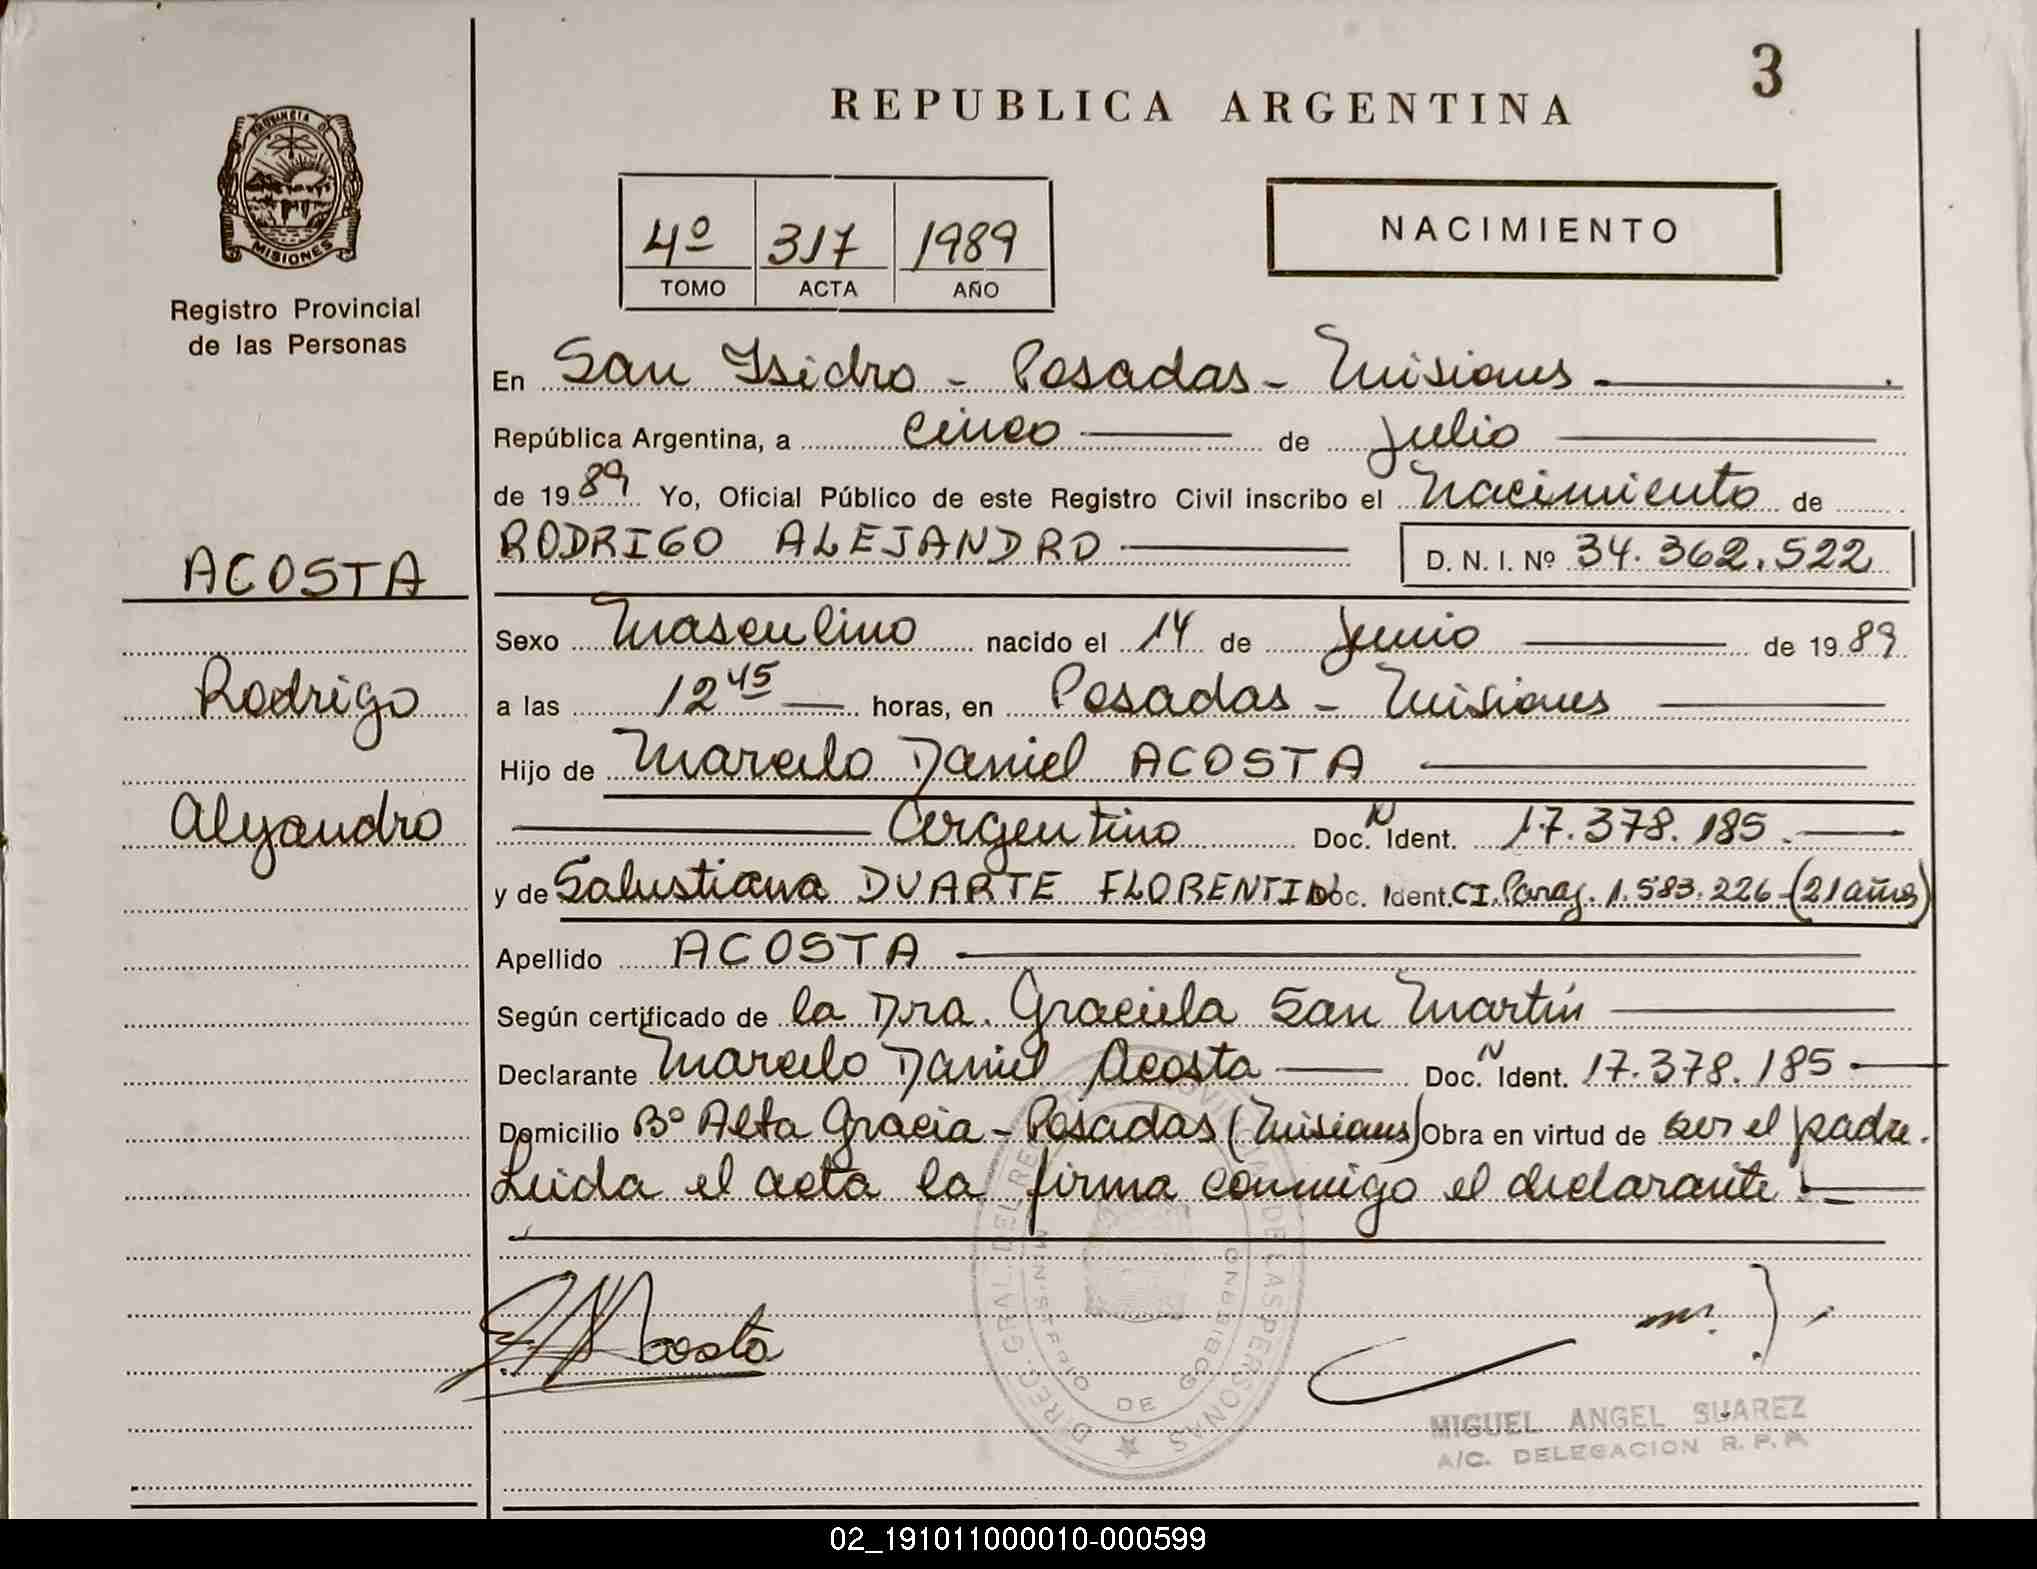 3
REPUBLICA ARGENTINA
PROVINCIA DE
MISIONES
Registro Provincial
de las Personas
4º 317 1989
TOMO ACTA AÑO
NACIMIENTO
En San Isidro - Posadas - Misiones -
República Argentina, a cinco de julio
de 1989 Yo, Oficial Público de este Registro Civil inscribo el Nacimiento de
RODRIGO ALEJANDRO D. N. I. Nº 34.362.522
ACOSTA
Rodrigo
Alejandro
Sexo Masculino nacido el 14 de junio de 1989
a las 12 45 horas, en Posadas - Misiones
Hijo de Marcelo Daniel ACOSTA
Argentino Doc. N Ident. 17.378.185.
y de Salustiana DUARTE FLORENTIN Doc. Ident. CI. Parag. 1.583.226 - (21 años)
Apellido ACOSTA
Según certificado de la Dra. Graciela San Martín
Declarante Marcelo Daniel Acosta Doc. N Ident. 17.378.185
Domicilio Bº Alta Gracia - Posadas (Misiones) Obra en virtud de ser el padre.
Leida el acta la firma conmigo el declarante.
Acosta
DIREC. GRAL. DEL REGISTRO PROVINCIAL DE LAS PERSONAS
MINISTERIO DE GOBIERNO
MIGUEL ANGEL SUAREZ
A/C. DELEGACION R. P. P.
02_191011000010-000599